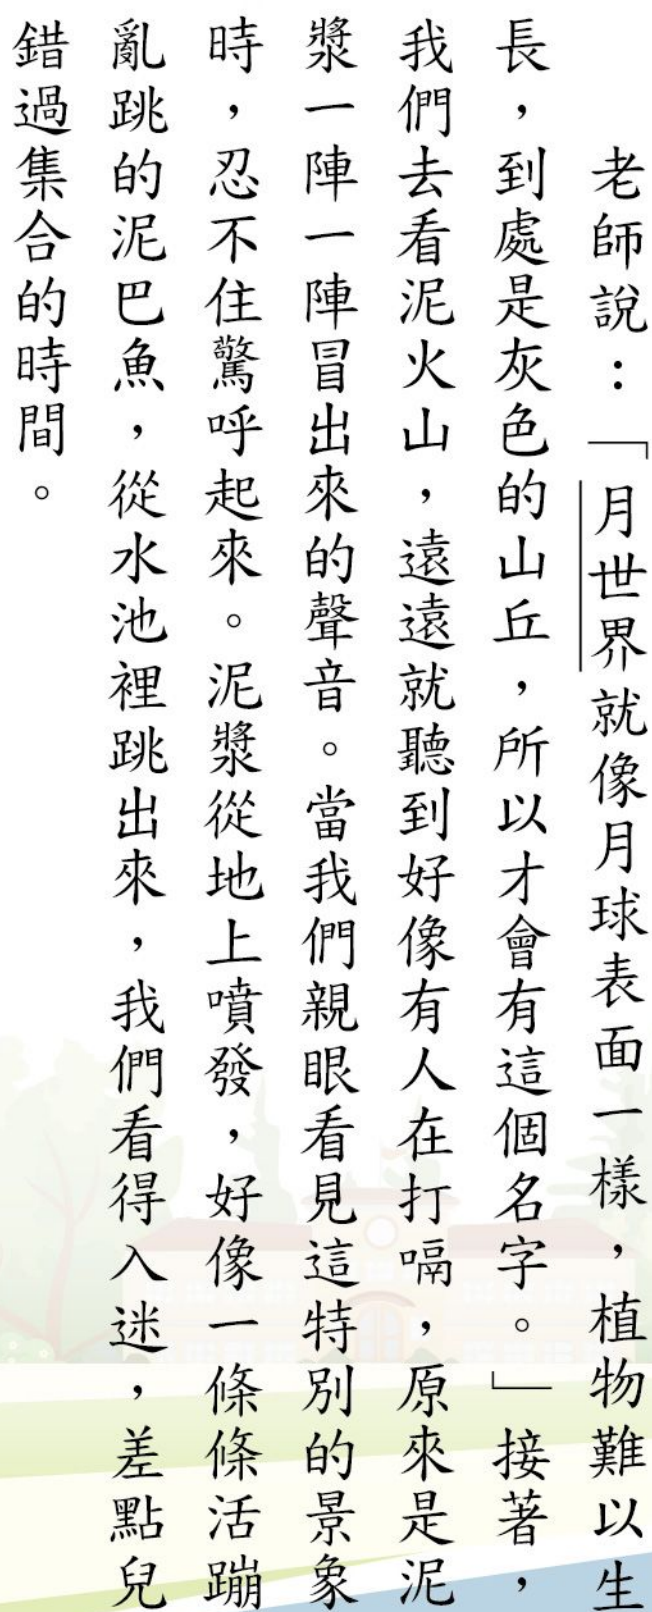 老師說：「月世界就像月球表面一樣，植物難以生
長，到處是灰色的山丘，所以才會有這個名字。」接著，
我們去看泥火山，遠遠就聽到好像有人在打嗝，原來是泥
漿一陣一陣冒出來的聲音。當我們親眼看見這特別的景象
時，忍不住驚呼起來。泥漿從地上噴發，好像一條條活蹦
亂跳的泥巴魚，從水池裡跳出來，我們看得入迷，差點兒
錯過集合的時間。